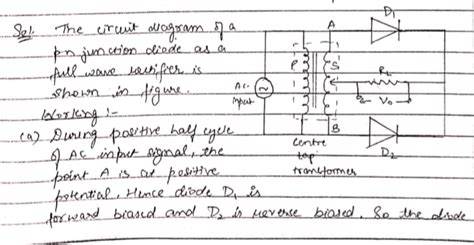 Sol. The circuit diagram of a
pn junction diode as a
full wave rectifier is
shown in figure.
Working :-
(a) During positive half cycle
of AC input signal, the
point A is at positive
potential. Hence diode D1 is
forward biased and D2 is reverse biased. So the diode
A
D1
P
S
C
RL
AC
input
V0
B
D2
Centre
tap
transformer